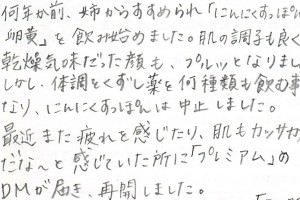 何年か前、姉からすすめられ「にんにくすっぽん
卵黄」を飲み始めました。肌の調子も良く
乾燥気味だった顔も、プルッとなりまし
しかし、体調をくずし薬を何種類も飲む事
なり、にんにくすっぽんは中止しました。
最近また疲れを感じたり、肌もカッサカ
だな〜と感じていた所に「プレミアム」の
DMが届き、再開しました。